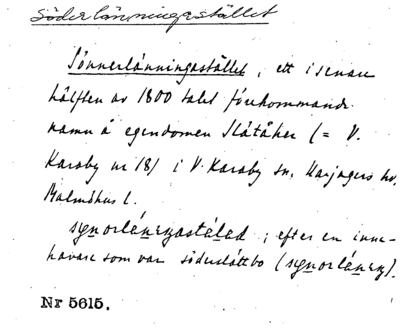 Söderlänningastället
Sönnerlänningastället, ett i senare
hälften av 1800 talet förekommande
namn å egendomen Slätåker (= V.
Karaby nr 18) i V. Karaby sn, Harjagers hd,
Malmöhus l.
; efter en inne-
havare som var söderslättbo
Nr 5615.